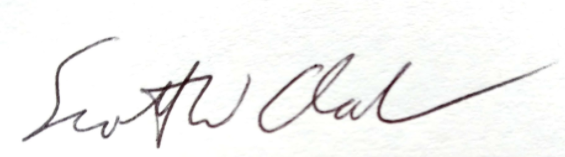 Scott W Clark